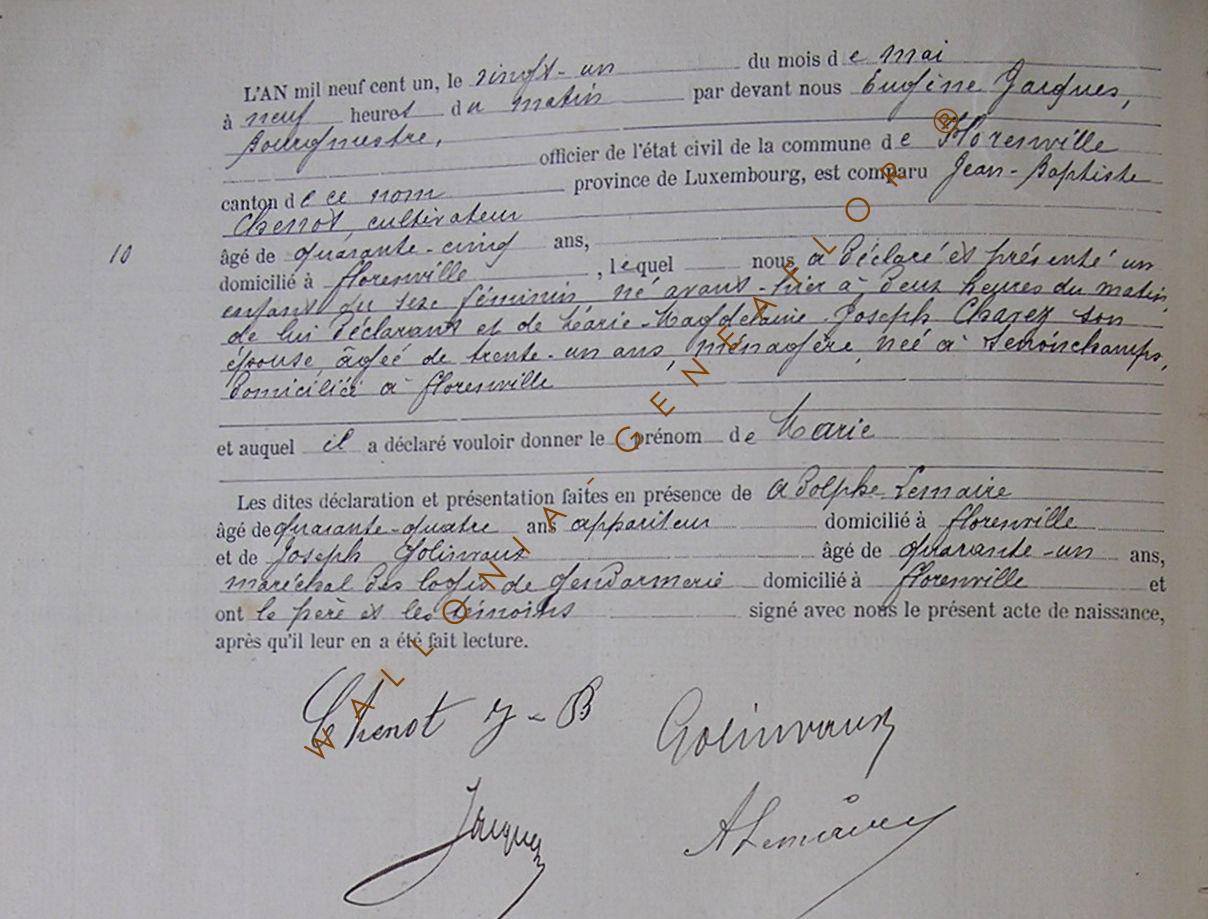 L'AN mil neuf cent un, le vingt-un du mois de mai
à neuf heures du matin par devant nous Eugène Jacques,
Bourgmestre,
officier de l'état civil de la commune de Florenville
canton de ce nom province de Luxembourg, est comparu Jean-Baptiste
Chenot, cultivateur
âgé de quarante-cinq ans,
10
domicilié à florenville, lequel nous a déclaré et présenté un
enfant du sexe féminin né avant-hier à deux heures du matin
de lui déclarant et de Marie-Magdelaine-Joseph son
épouse, âgée de trente-un ans, ménagère, née à Senoinchamps,
domiciliée à florenville
et auquel il a déclaré vouloir donner le prénom de Marie
Les dites déclaration et présentation faites en présence de Adolphe Lemaire
âgé de quarante-quatre ans appariteur domicilié à florenville
et de Joseph Golinvaux âgé de quarante-un ans,
maréchal des logis de gendarmerie domicilié à florenville et
ont le père et les témoins signé avec nous le présent acte de naissance,
après qu'il leur en a été fait lecture.
Chenot J-B Golinvaux
Jacques ALemaire
WALLONIA-GENEAFLOR®